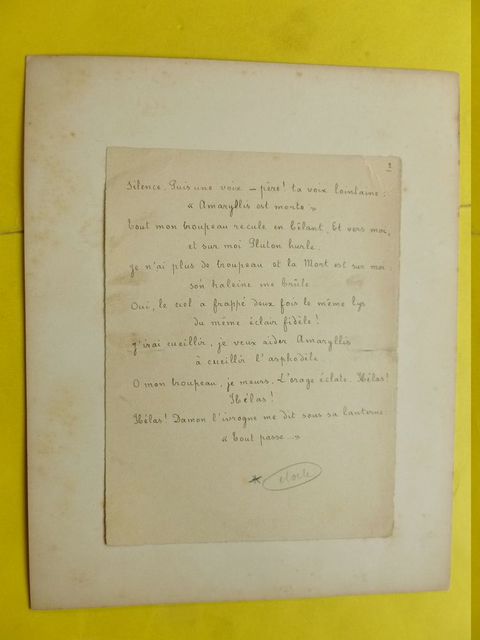 2
Silence. Puis une voix — père! ta voix lointaine :
« Amaryllis est morte. »
Tout mon troupeau recule en bêlant. Et vers moi,
et sur moi Pluton hurle.
Je n'ai plus de troupeau et la Mort est sur moi :
son haleine me brûle.
Oui, le ciel a frappé deux fois le même lys
du même éclair fidèle!
J'irai cueillir, je veux aider Amaryllis
à cueillir l'asphodèle.
O mon troupeau, je meurs. L'orage éclate. Hélas!
Hélas!
Hélas! Damon l'ivrogne me dit sous sa lanterne
« Tout passe... »
* étoile